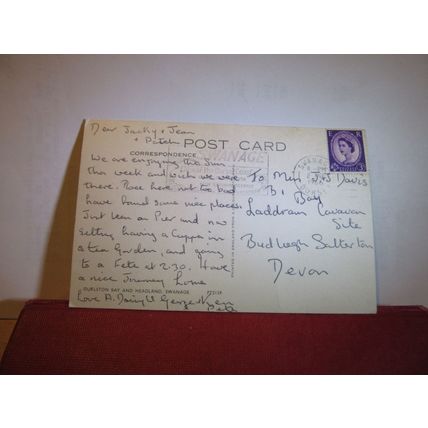 Dear Jacky + Jean
+ Peter
POST CARD
CORRESPONDENCE
SWANAGE
E R
3D
We are enjoying the Sun
this week and wish we were
there. Place here not too bad
have found some nice places.
Just been on Pier and now
setting having a Cuppa in
a tea Garden, and going
to a Fete at 2.30. Have
a nice Journey Love
Love A. Daisy U George Ken
Pete
To Miss J & J Davis
B1 Bay
Laddram Caravan
Site
Budleigh Salterton
Devon
DURLSTON BAY AND HEADLAND, SWANAGE